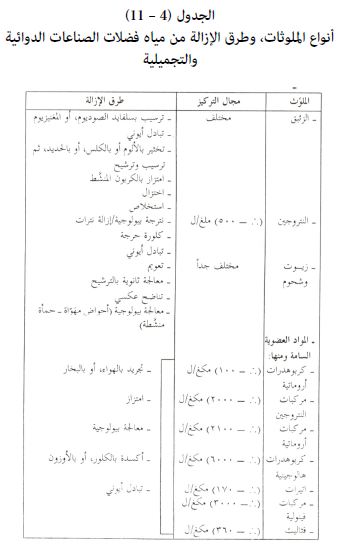 الجدول (4 – 11)
أنواع الملوثات، وطرق الإزالة من مياه فضلات الصناعات الدوائية
والتجميلية
الملوّث مجال التركيز طرق الإزالة
ـ الزئبق مختلف ـ ترسيب بسلفايد الصوديوم، أو المغنيزيوم
ـ تبادل أيوني
ـ تخثير بالألوم أو بالكلس، أو بالحديد، ثم
ترسيب وترشيح
ـ امتزاز بالكربون المنشّط
ـ اختزال
ـ استخلاص
ـ النتروجين (.∴ — ٥٠٠) ملغ/ل ـ نترجة بيولوجية/إزالة نترات
ـ كلورة حرجة
ـ تبادل أيوني
ـ زيـوت مختلف جداً ـ تعويم
وشحوم ـ معالجة ثانوية بالترشيح
ـ تناضح عكسي
ـ معالجة بيولوجية (أحواض مهوّاة ـ حمأة
منشّطة)
ـ المواد العضوية
السامة ومنها:
ـ كربوهدرات (.∴ — ١٠٠) مكغ/ل ـ تجريد بالهواء، أو بالبخار
أروماتية
ـ مركبات (.∴ — ٢٠٠٠) مكغ/ل ـ امتزاز
النتروجين
ـ مركبات (.∴ — ٢١٠٠) مكغ/ل ـ معالجة بيولوجية
أروماتية
ـ كربوهدرات (.∴ — ٦٠٠٠) مكغ/ل ـ أكسدة بالكلور، أو بالأوزون
هالوجينية
ـ اتيرات (.∴ — ١٧٠) مكغ/ل ـ تبادل أيوني
ـ مركبات (.∴ — ٣٠٠٠) مكغ/ل
فينولية
ـ فثاليت (.∴ — ٣٦٠) مكغ/ل